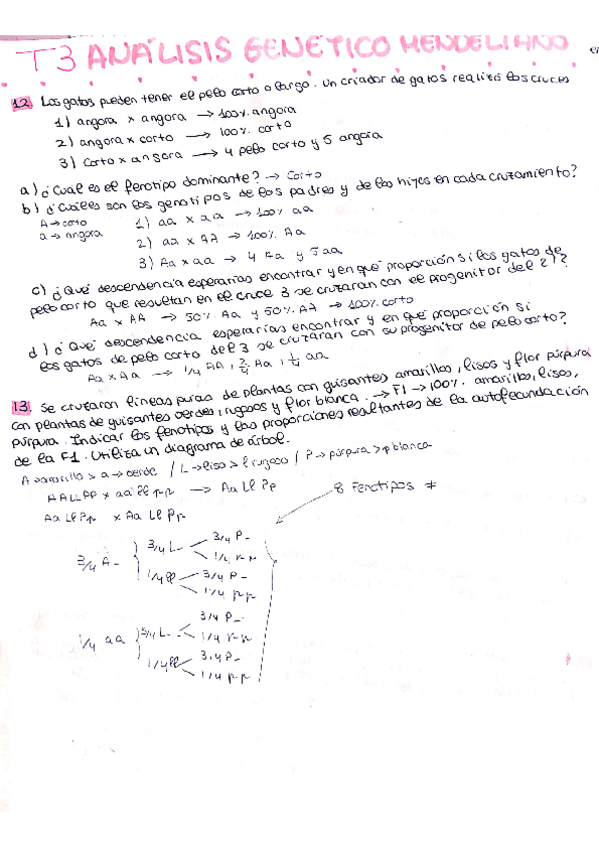 T3 ANÁLISIS GENÉTICO MENDELIANO
12. Los gatos pueden tener el pelo corto o largo. Un criador de gatos realizó los cruces
1) angora x angora → 100% angora
2) angora x corto → 100% corto
3) corto x angora → 4 pelo corto y 5 angora
a) ¿Cual es el fenotipo dominante? → Corto
b) ¿Cuáles son los genotipos de los padres y de los hijos en cada cruzamiento?
A → corto
a → angora
1) aa x aa → 100% aa
2) aa x AA → 100% Aa
3) Aa x aa → 4 Aa y 5 aa
c) ¿Qué descendencia esperarías encontrar y en qué proporción si los gatos de
pelo corto que resultan en el cruce 3 se cruzaran con el progenitor del 2)?
Aa x AA → 50% Aa y 50% AA → 100% corto
d) ¿Qué descendencia esperarías encontrar y en qué proporción si
los gatos de pelo corto del 3 se cruzaran con su progenitor de pelo corto?
Aa x Aa → 1/4 AA, 2/4 Aa, 1/4 aa
13. Se cruzaron líneas puras de plantas con guisantes amarillos, lisos y flor púrpura
con plantas de guisantes verdes, rugosos y flor blanca. → F1 → 100% amarillos, lisos,
púrpura. Indicar los fenotipos y las proporciones resultantes de la autofecundación
de la F1. Utiliza un diagrama de árbol.
A → amarillo > a → verde / L → liso > l rugoso / P → púrpura > p blanca
AALLPP x aa ll pp → Aa Ll Pp
Aa Ll Pp x Aa Ll Pp
8 Fenotipos #
3/4 A-
3/4 L-
3/4 P-
1/4 pp
1/4 ll
3/4 P-
1/4 pp
1/4 aa
3/4 L-
3/4 P-
1/4 pp
1/4 ll
3/4 P-
1/4 pp